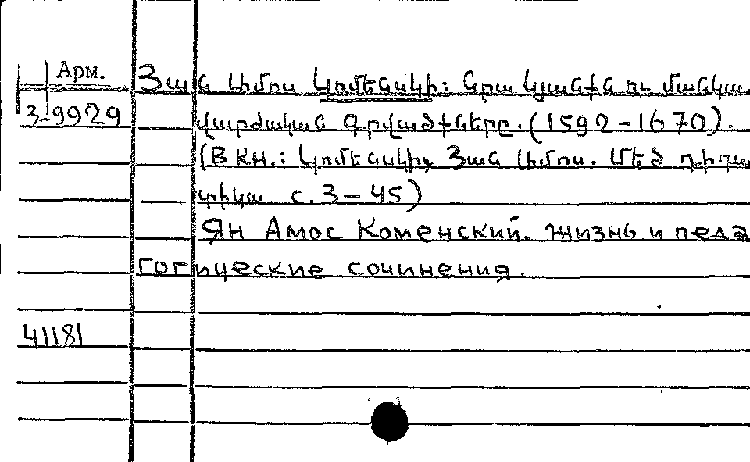 Арм.
3-9929
Յան Ամոս Կոմենսկի: Նրա կյանքն ու մանկա
վարժական գրվածքները. (1592-1670).
(В кн.: Կոմենսկի, Յան Ամոս. Մեծ դիդա
տիկա с. 3-45)
Ян Амос Коменский. жизнь и педа
гогические сочинения.
41181